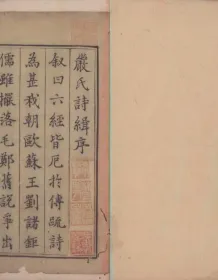 嚴氏詩緝序
叙曰六經皆厄於傳疏詩
為甚我朝歐蘇王劉諸鉅
儒雖擺落毛鄭舊說爭出